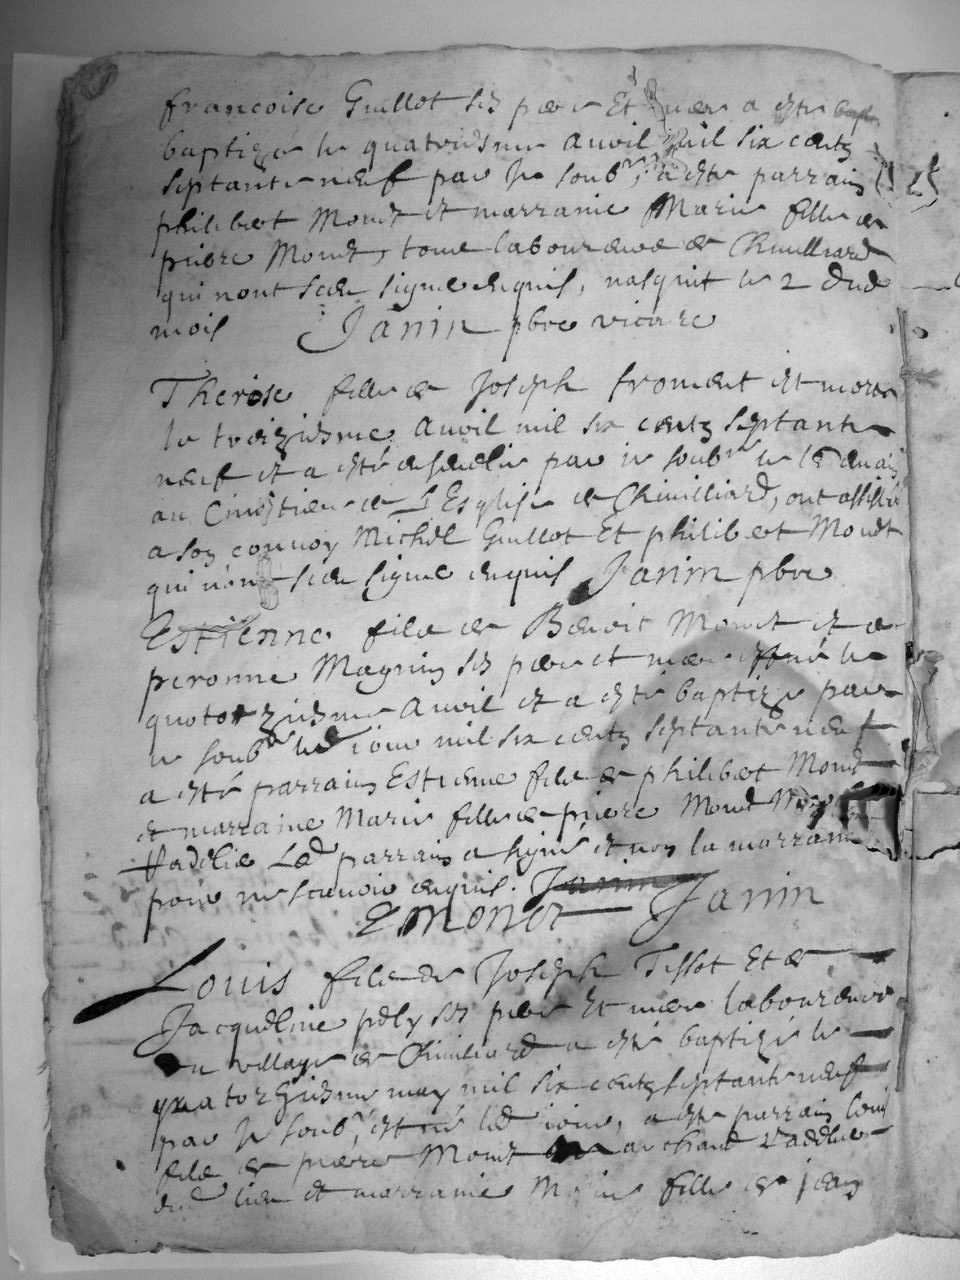 francoise Guillot ses pere Et mere a este
baptizée le quatriesme Avvil mil six centz
septante neuf par Je soubné, a este parrain
philibert Monet et marraine Marie fille de
pierre Monet, tous laboureurs de Chivilliard
qui n'ont sceu signer enquis, nasquit le 2 dud
mois Janin pbre vicaire
Therese fille de Joseph froment est morte
le treiziesme Avvil mil six centz septante
neuf et a esté ensevelie par je soubné le lendemain
au Cimstiere de L'Esglise de Chivilliard, ont assisté
a son convoy Michel Guillot Et philibert Monet
qui n'ont sceu signer enquis Janin pbre
Estienne filz de Benoit Monet et de
peronne Magnin ses pere et mere est né le
quatorziesme Avvil et a esté baptizé par
je soubné led jour mil six centz septante neuf
a esté parrain Estienne filz de philibert Monet
et marraine Marie fille de pierre Monet
Led parrain a signé et non la marraine
pour ne scavoir enquis. Janin
E Monet Janin
Louis filz de Joseph Tissot Et de
Jacqueline pely ses pere Et mere laboureurs
du village de Chivilliard a esté baptizé le
quatorziesme may mil six centz septante neuf
par Je soubné, est né led jour, a esté parrain Louis
filz de pierre Monet marchand
dud lieu et marraine Marie fille de jean